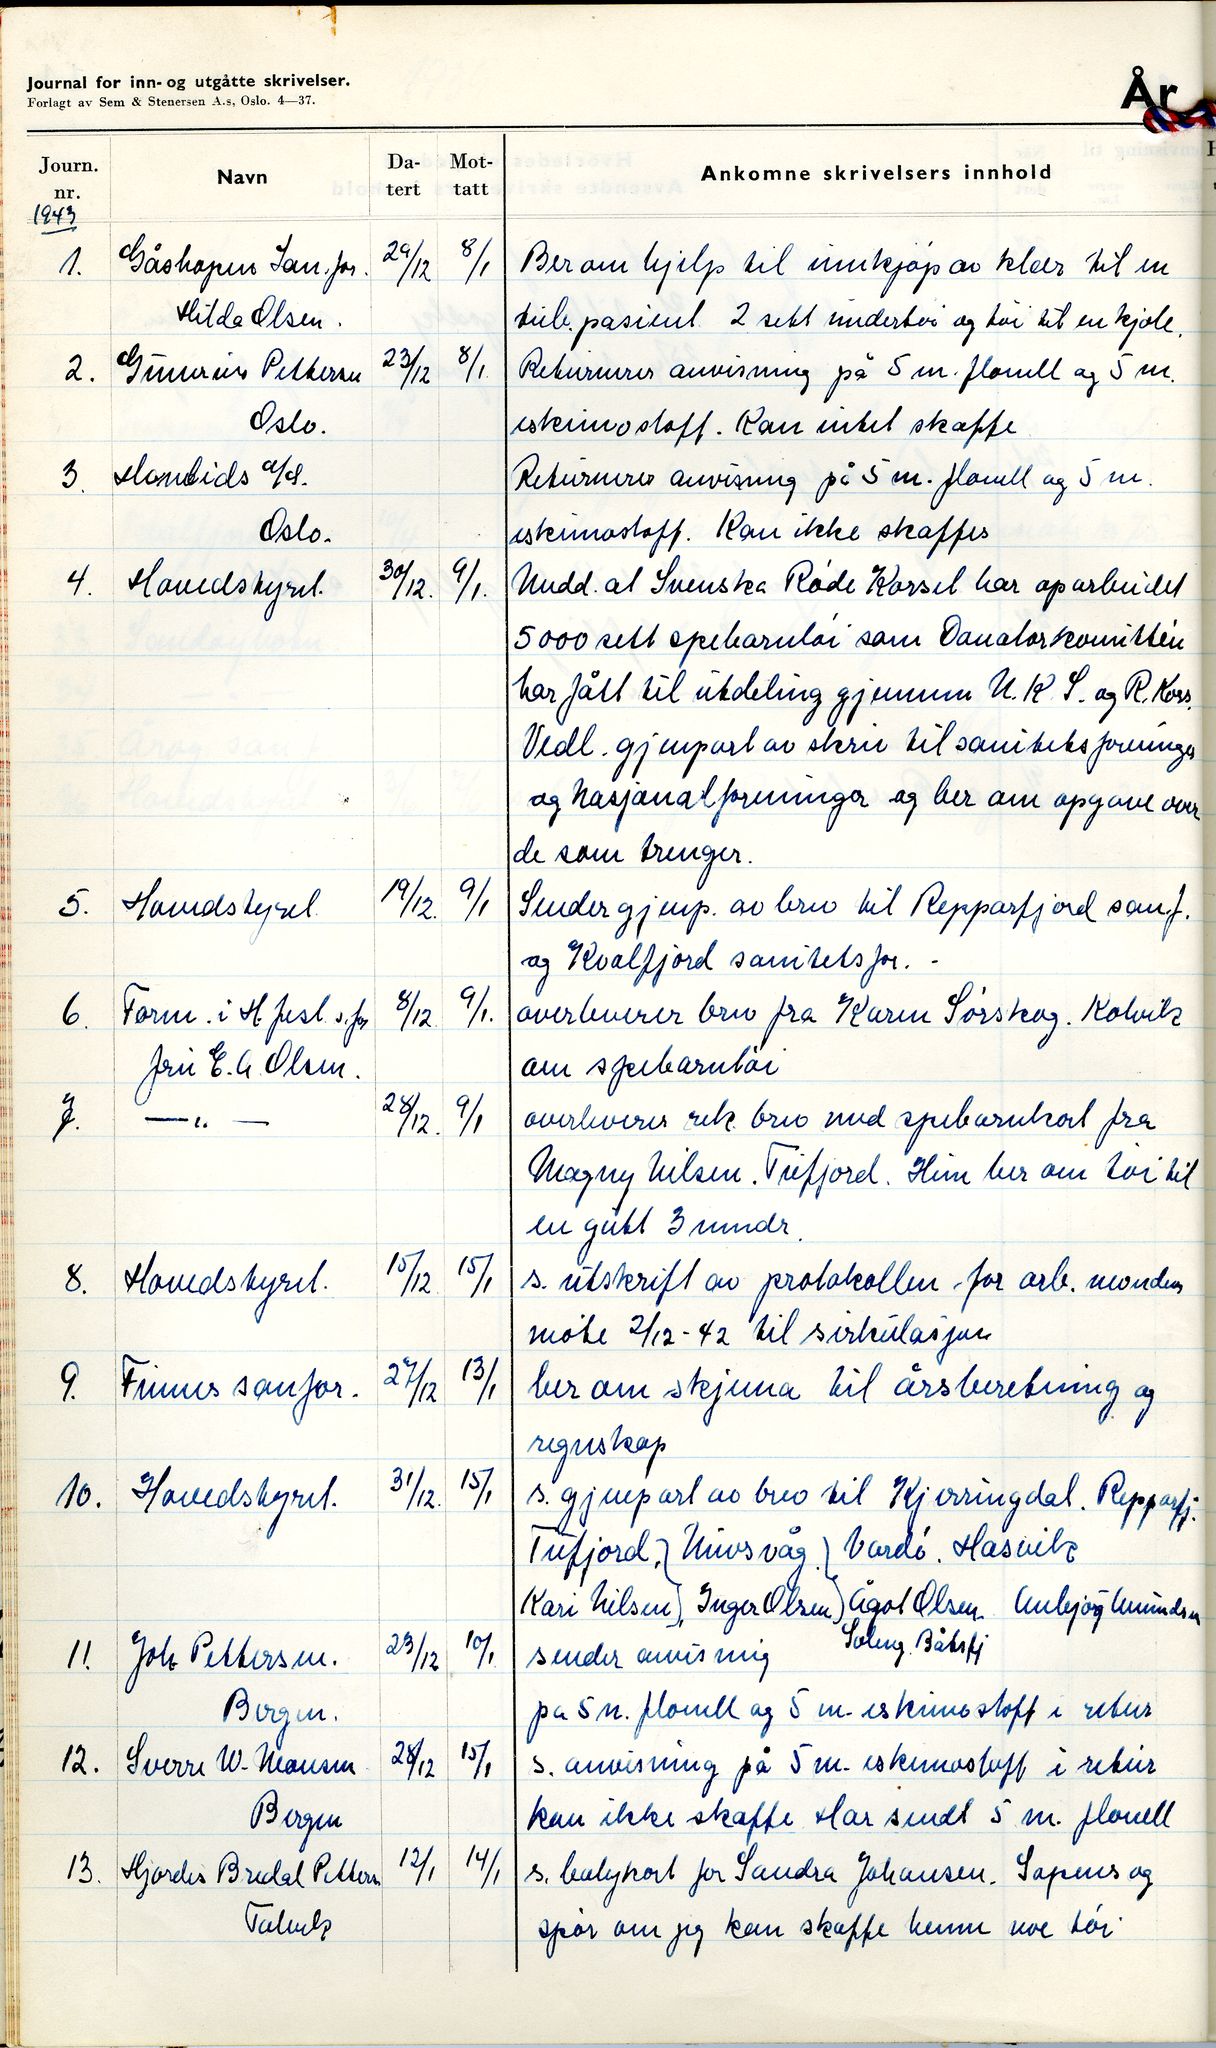 Journal for inn- og utgåtte skrivelser.
Forlagt av Sem & Stenersen A.s, Oslo. 4—37.
År
Journ. nr. Navn Da-tert Mot-tatt Ankomne skrivelsers innhold
1943
1. Gåshopen San. for. 29/12 8/1 Ber om hjelp til innkjøp av klær til en
Hilda Olsen. tub. pasient 2 sett undertøi og tøi til en kjole.
2. Gunerius Pettersen 23/12 8/1 Returnerer anvisning på 5 m. flonell og 5 m.
Oslo. eskimostoff. Kan intet skaffe
3. a/s. Returnerer anvisning på 5 m. flonell og 5 m.
Oslo. eskimostoff. Kan ikke skaffes
4. Hovedstyret. 30/12. 9/1. Medd. at Svenska Røde Korset har oparbeidet
5000 sett spebarntøi som Donatorkomitéen
har fått til utdeling gjennem N.K.S. og R. Kors.
Vedl. gjenpart av skriv til sanitetsforeninger
og Nasjonalforeninger og ber om opgave over
de som trenger.
5. Hovedstyret 19/12. 9/1 Sender gjenp. av brev til Repparfjord san.f.
og Kvalfjord sanitetsfor. -
6. Form. i H.fest s. for 8/12 9/1. overleverer brev fra Karen Sørskog. Kolvik
fru E. A. Olsen. om spebarntøi
7. —"— 28/12. 9/1 overleverer rek. brev med spebarnkort fra
Magny Nilsen. Tufjord. Hun ber om tøi til
en gutt 3 mndr.
8. Hovedstyret. 15/12 15/1 s. utskrift av protokollen for arb.
møte 2/12-42 til sirkulasjon
9. Finnes sanfor. 27/12 13/1 ber om skjema til årsberetning og
regnskap
10. Hovedstyret. 31/12. 15/1 s. gjenpart av brev til Kjerringdal. Repparfj.
Tufjord,) ) Vardø. Hasvik
Kari Nilsen), Inger Olsen) Ågot Olsen
Båtsfj
11. Joh Pettersen. 23/12 10/1 sender anvisning
Bergen. pa 5 m. flonell og 5 m. eskimostoff i retur
12. Sverre W. Monsen 28/12 15/1 s. anvisning på 5 m. eskimostoff i retur
Bergen kan ikke skaffe Har sendt 5 m. flonell
13. Hjørdis Bredal Petters 12/1 14/1 s. babykort for Sandra Johansen. og
Talvik spør om jeg kan skaffe henne noe tøi